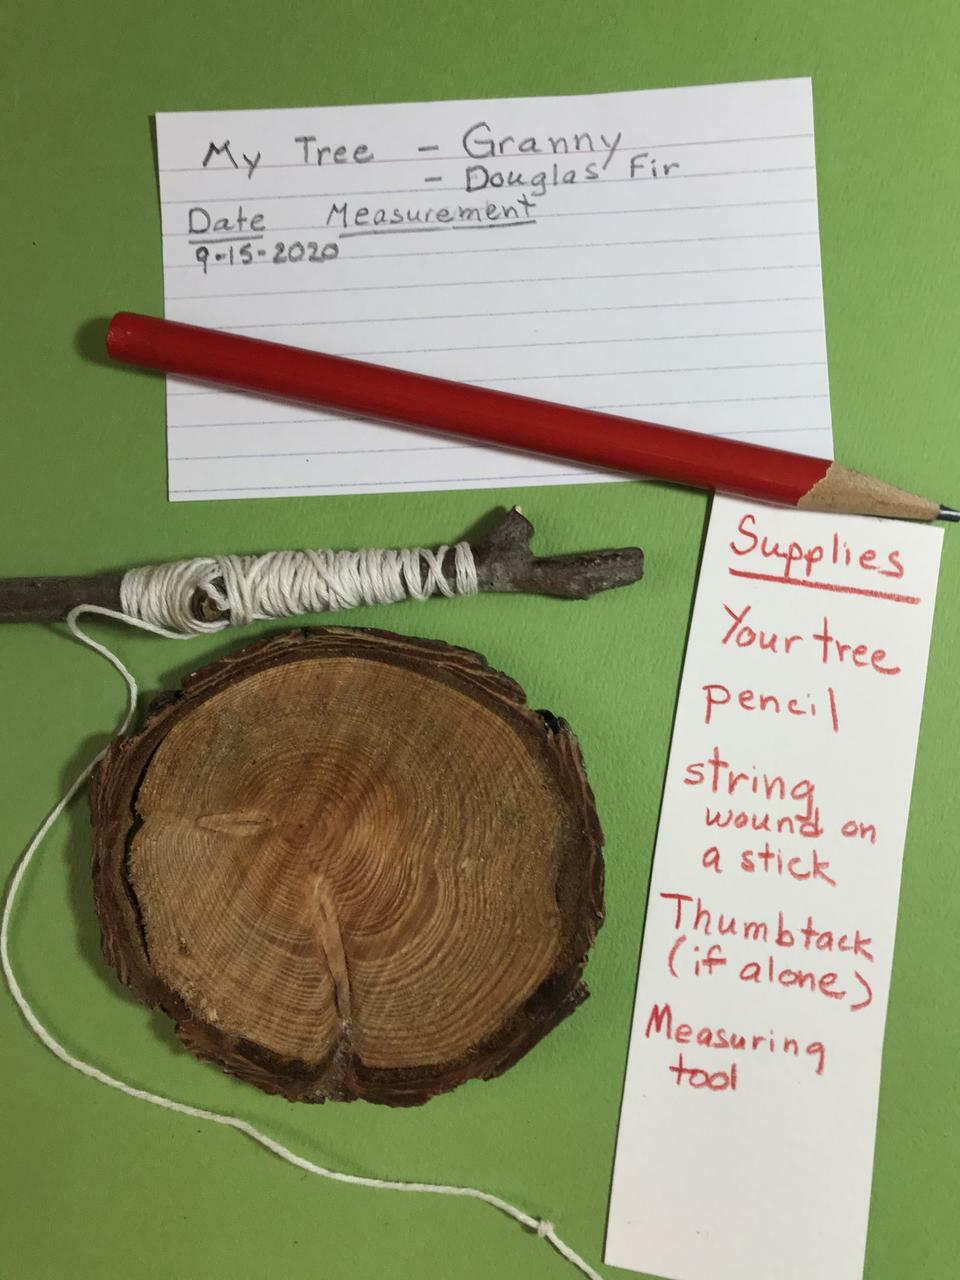 My Tree - Granny
- Douglas Fir
Date Measurement
9-15-2020
Supplies
Your tree
pencil
string
wound on
a stick
Thumbtack
(if alone)
Measuring
tool